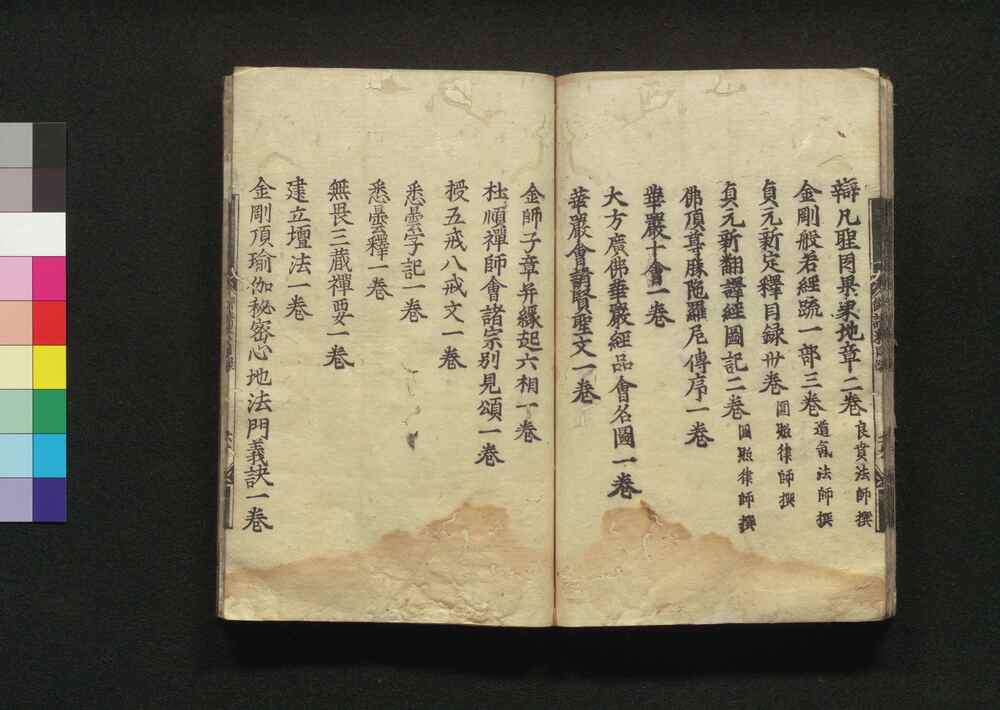 辯凡聖因果界地章二卷 良賁法師撰
金剛般若經疏一部三卷 道氤法師撰
貞元新定釋目録卅卷 圓照律師撰
貞元新翻譯經圖記二卷 圓照律師撰
佛頂尊勝陁羅尼傳序一卷
華嚴十會一卷
大方廣佛華嚴經品會名圖一卷
華嚴會請賢聖文一卷
金師子章并緣起六相一卷
杜順禪師會諸宗別見頌一卷
授五戒八戒文一卷
悉曇字記一卷
悉曇釋一卷
無畏三藏禪要一卷
建立壇法一卷
金剛頂瑜伽秘密心地法門義訣一卷